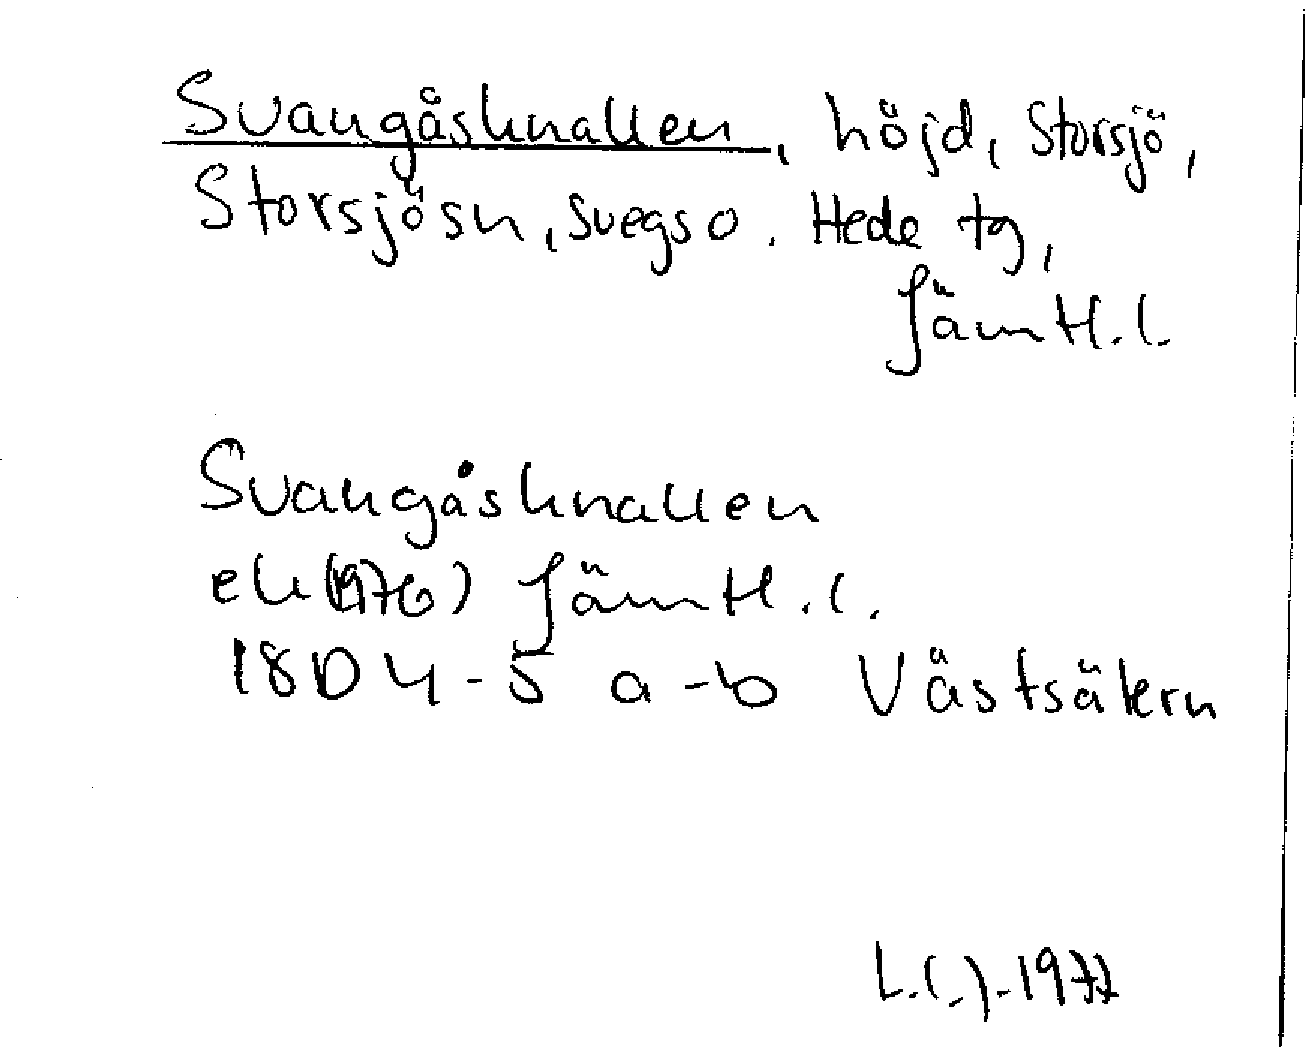 Svangåsknallen, höjd, Storsjö,
Storsjösn, Svegs o. Hede tg,
Jämtl. l.
Svangåsknallen
ek (1976) Jämtl. l.
18D 4-5 a-b Västsätern
L.C.J. 1977